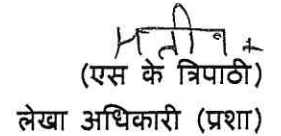 (एस के त्रिपाठी)
लेखा अधिकारी (प्रशा)